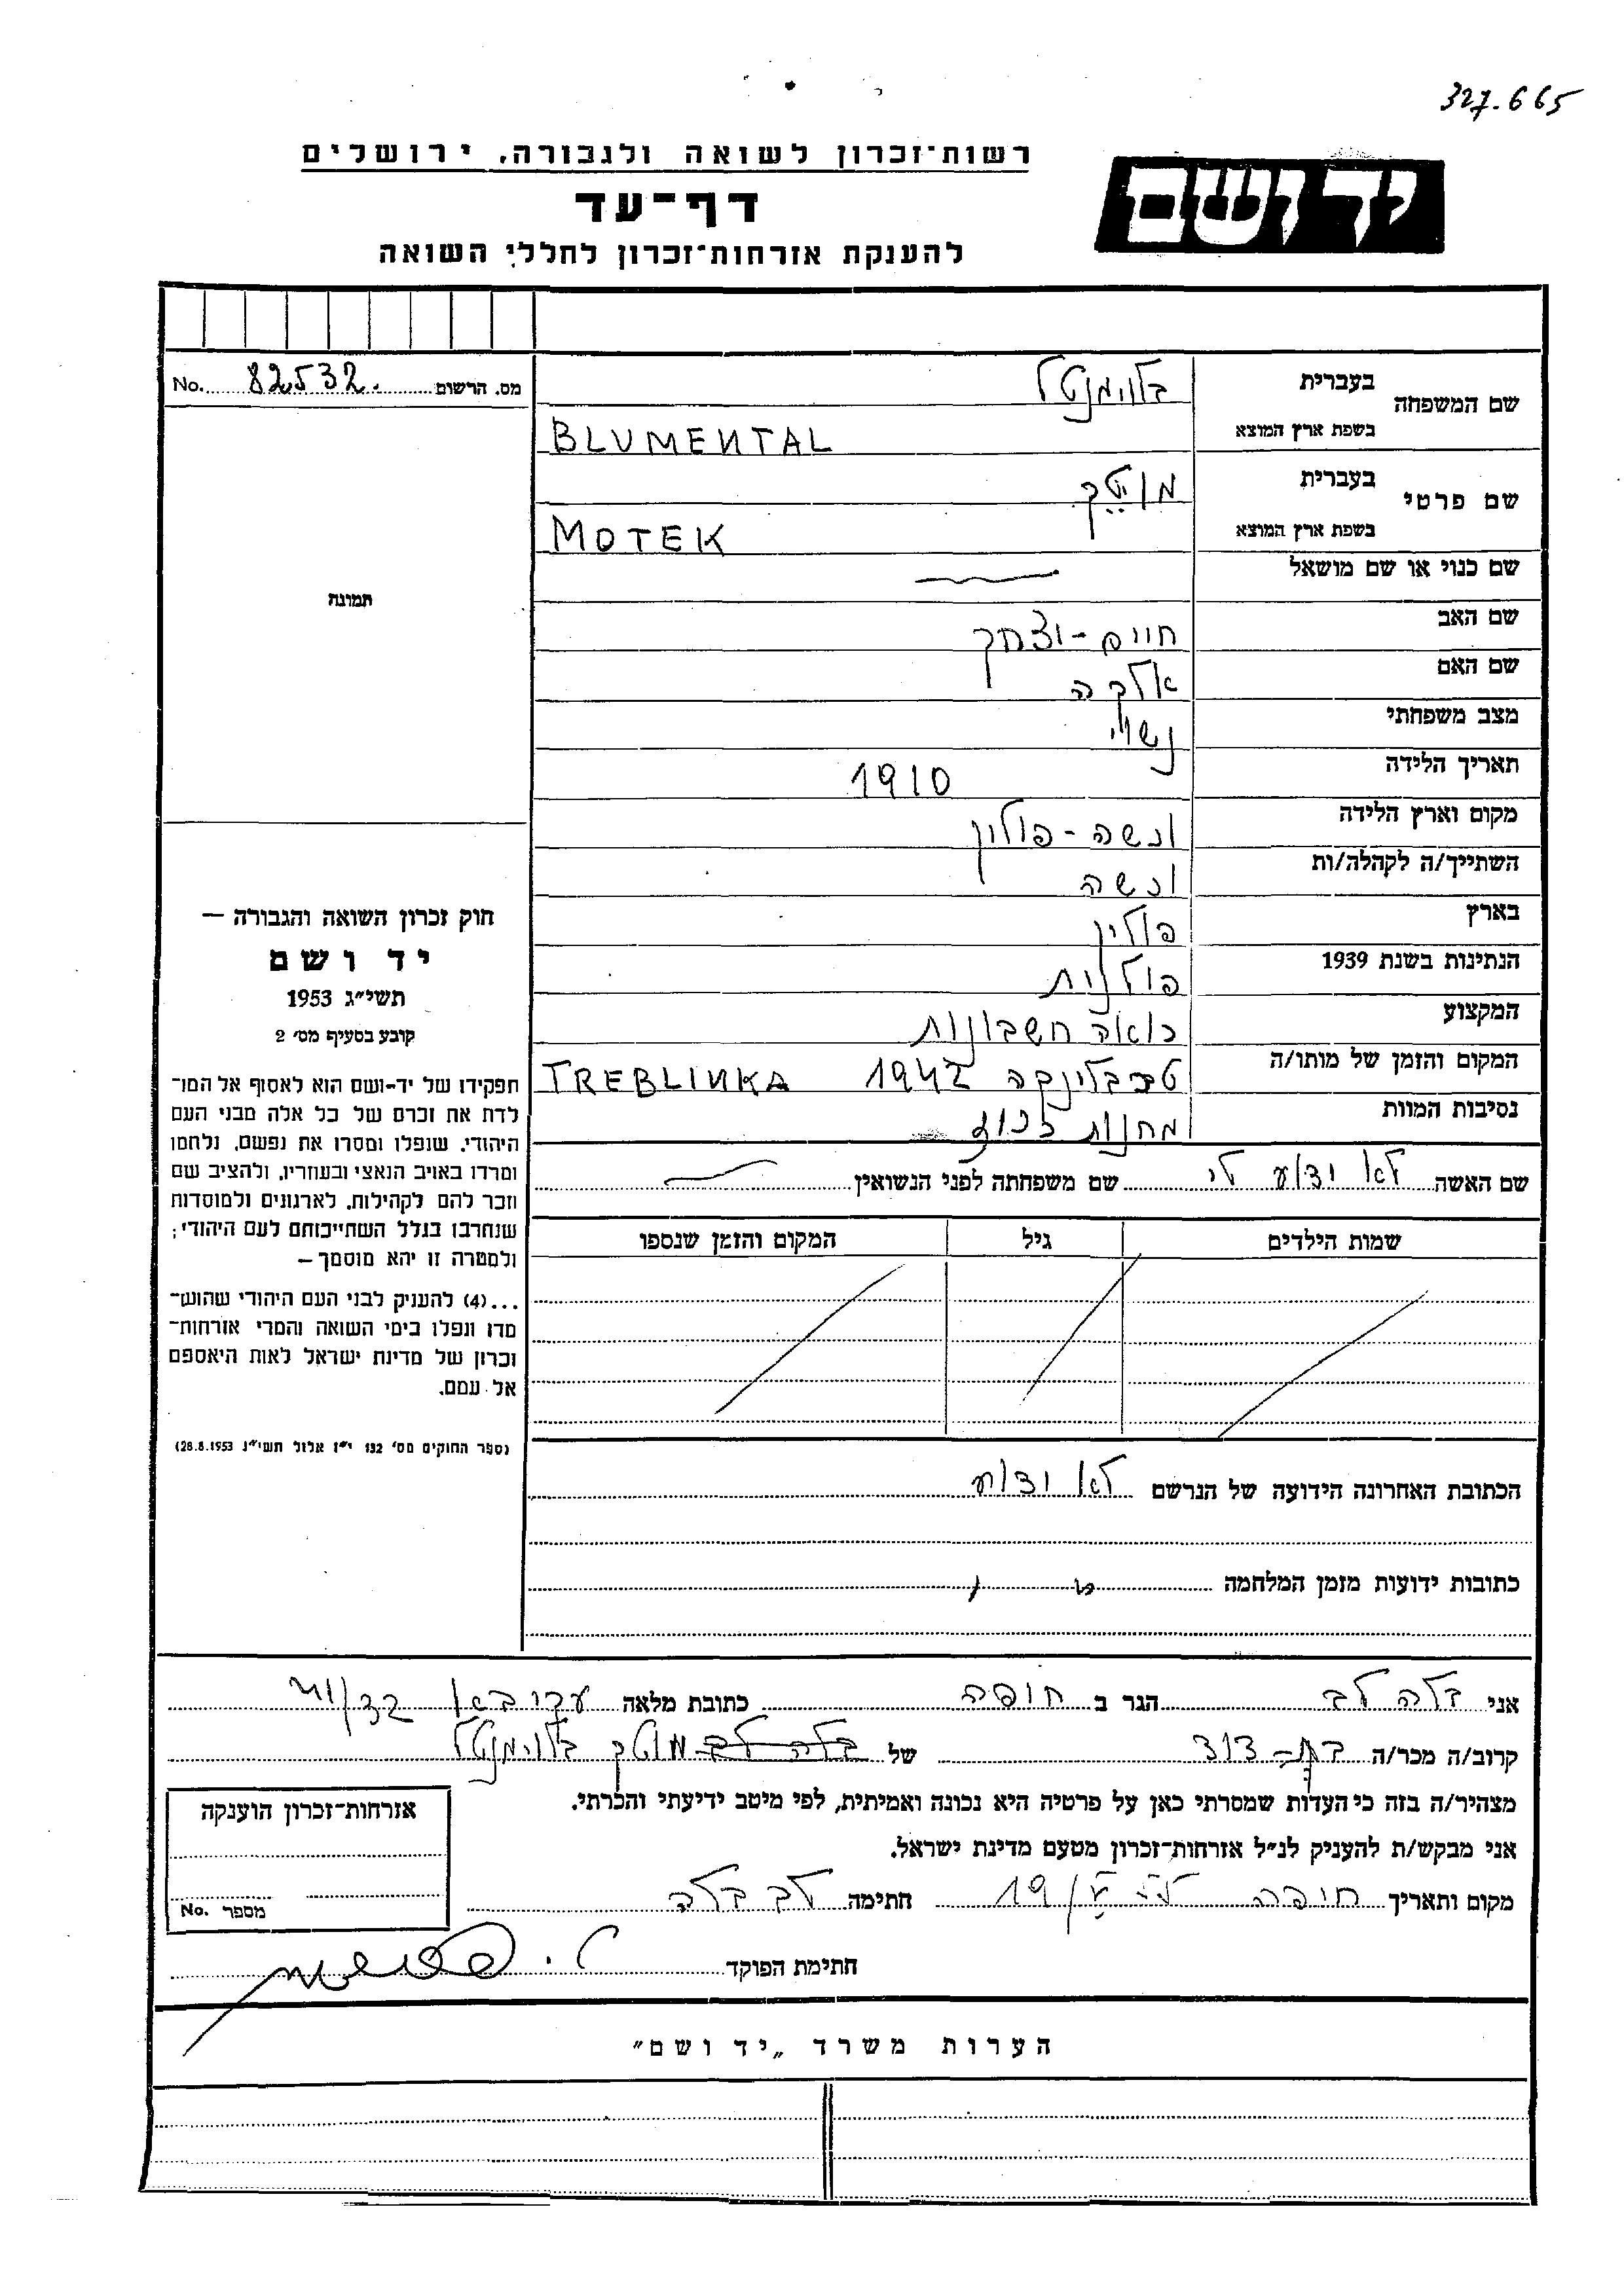 327.665
רשות־זכרון לשואה ולגבורה, ירושלים
יד ושם
דף־עד
להענקת אזרחות־זכרון לחללי השואה
מס. הרשום 82532. No.
שם המשפחה
בעברית בלוימנטל
בשפת ארץ המוצא BLUMENTAL
שם פרטי
בעברית מוטק
בשפת ארץ המוצא MOTEK
שם כנוי או שם מושאל
שם האב חיים-יצחק
שם האם אלקה
מצב משפחתי נשוי
תאריך הלידה 1910
מקום וארץ הלידה ורשה-פולין
השתייך/ה לקהלה/ות ורשה
בארץ פולין
הנתינות בשנת 1939 פולנית
המקצוע רואה חשבונות
המקום והזמן של מותו/ה טרבלינקה 1942 TREBLINKA
נסיבות המוות מחנות ריכוז
שם האשה לא ידוע לי שם משפחתה לפני הנשואין
שמות הילדים גיל המקום והזמן שנספו
הכתובת האחרונה הידועה של הנרשם לא ידוע
כתובות ידועות מזמן המלחמה
תמונה
חוק זכרון השואה והגבורה —
יד ושם
תשי״ג 1953
קובע בסעיף מס׳ 2
תפקידו של יד-ושם הוא לאסוף אל המו־
לדת את זכרם של כל אלה מבני העם
היהודי, שנפלו ומסרו את נפשם, נלחמו
ומרדו באויב הנאצי ובעוזריו, ולהציב שם
וזכר להם לקהילות, לארגונים ולמוסדות
שנחרבו בגלל השתייכותם לעם היהודי;
ולמטרה זו יהא מוסמך —
...(4) להעניק לבני העם היהודי שהוש־
מדו ונפלו בימי השואה והמרי אזרחות־
זכרון של מדינת ישראל לאות היאספם
אל עמם.
(ספר החוקים מס׳ 132 י״ז אלול תשי״ג 28.8.1953)
אני בלה לב הגר ב חיפה כתובת מלאה
קרוב/ה מכר/ה בת-דוד של בלה לב מוטק בלוימנטל
מצהיר/ה בזה כי העדות שמסרתי כאן על פרטיה היא נכונה ואמיתית, לפי מיטב ידיעתי והכרתי.
אני מבקש/ת להעניק לנ״ל אזרחות־זכרון מטעם מדינת ישראל.
מקום ותאריך חיפה חתימה לב בלה
חתימת הפוקד
אזרחות־זכרון הוענקה
מספר No.
הערות משרד „יד ושם״